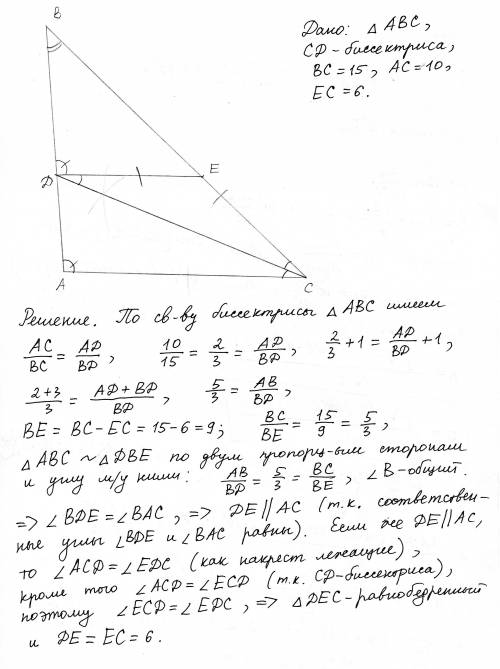 B
Дано: △ ABC,
CD - биссектриса,
BC = 15, AC = 10,
EC = 6.
D
E
A
C
Решение. По св-ву биссектрисы △ ABC имеем
AC/BC = AD/BD, 10/15 = 2/3 = AD/BD, 2/3 + 1 = AD/BD + 1,
2+3/3 = AD + BD/BD, 5/3 = AB/BD,
BE = BC - EC = 15 - 6 = 9; BC/BE = 15/9 = 5/3,
△ ABC ~ △ DBE по двум пропорц-ым сторонам
и углу м/у ними: AB/BD = 5/3 = BC/BE, ∠ B - общий.
=> ∠ BDE = ∠ BAC, => DE ∥ AC (т.к. соответствен-
ные углы ∠ BDE и ∠ BAC равны). Если же DE ∥ AC,
то ∠ ACD = ∠ EDC (как накрест лежащие),
кроме того ∠ ACD = ∠ ECD (т.к. CD - биссектриса),
поэтому ∠ ECD = ∠ EDC, => △ DEC - равнобедренный
и DE = EC = 6.